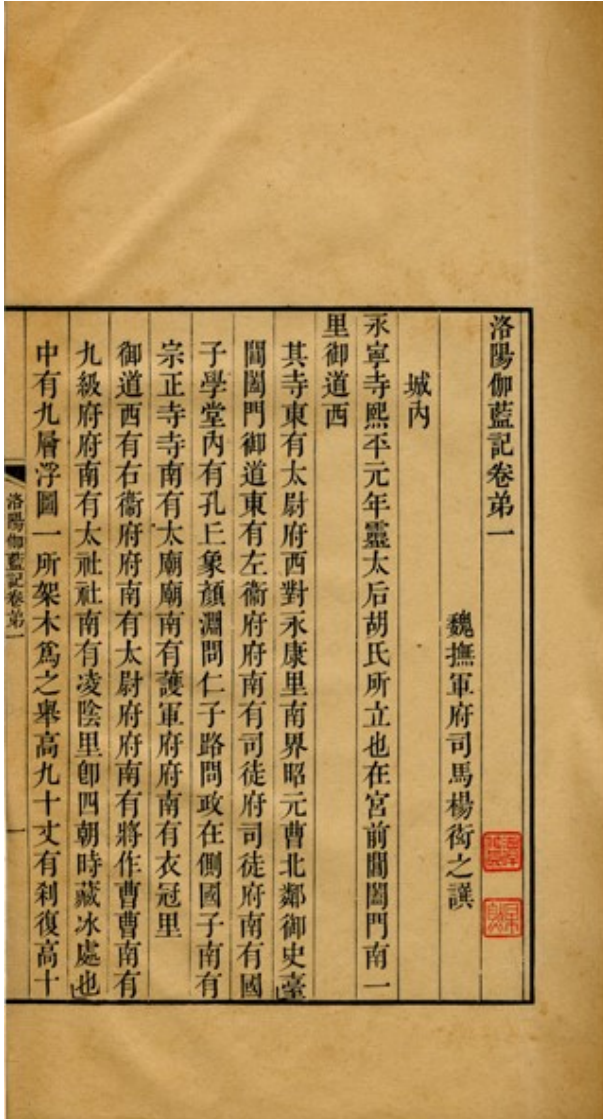 洛陽伽藍記卷弟一
魏撫軍府司馬楊衒之譔
城內
永寧寺熙平元年靈太后胡氏所立也在宮前閶闔門南一
里御道西
其寺東有太尉府西對永康里南界昭元曹北鄰御史臺
閶闔門御道東有左衞府府南有司徒府司徒府南有國
子學堂內有孔丘象顏淵問仁子路問政在側國子南有
宗正寺寺南有太廟廟南有護軍府府南有衣冠里
御道西有右衞府府南有太尉府府南有將作曹曹南有
九級府府南有太社社南有凌陰里卽四朝時藏冰處也
中有九層浮圖一所架木爲之舉高九十丈有刹復高十
洛陽伽藍記卷弟一
一